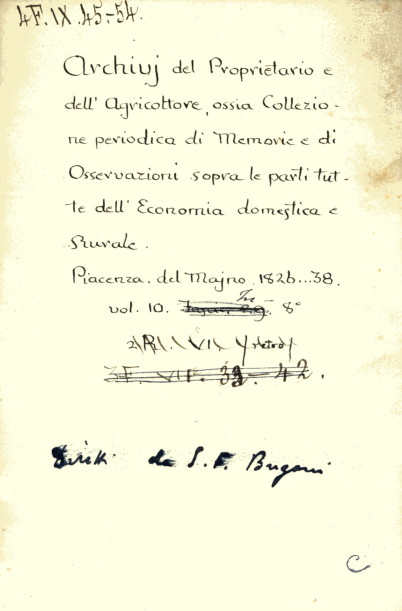 4F.IX.45-54.
Archivj del Proprietario e
dell' Agricoltore, ossia Collezio-
ne periodica di Memorie e di
Osservazioni sopra le parti tut-
te dell' Economia domestica e
Rurale.
Piacenza. del Majno. 1826...38.
vol. 10. 8°
3F. VII. 33-42.
da S. F. Brigoni
C